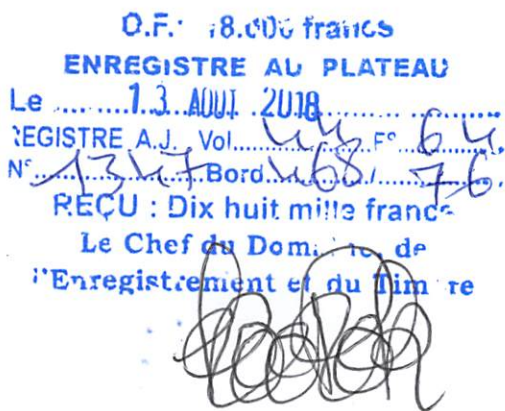 D.F.: 18.000 francs
ENREGISTRE AU PLATEAU
Le ......... 1 3 AOUT 2018 ....................
REGISTRE A.J. Vol..... 44 ....F° 64
N° 1347 Bord. 468 / 76
REÇU : Dix huit mille francs
Le Chef du Domaine, de
l'Enregistrement et du Timbre